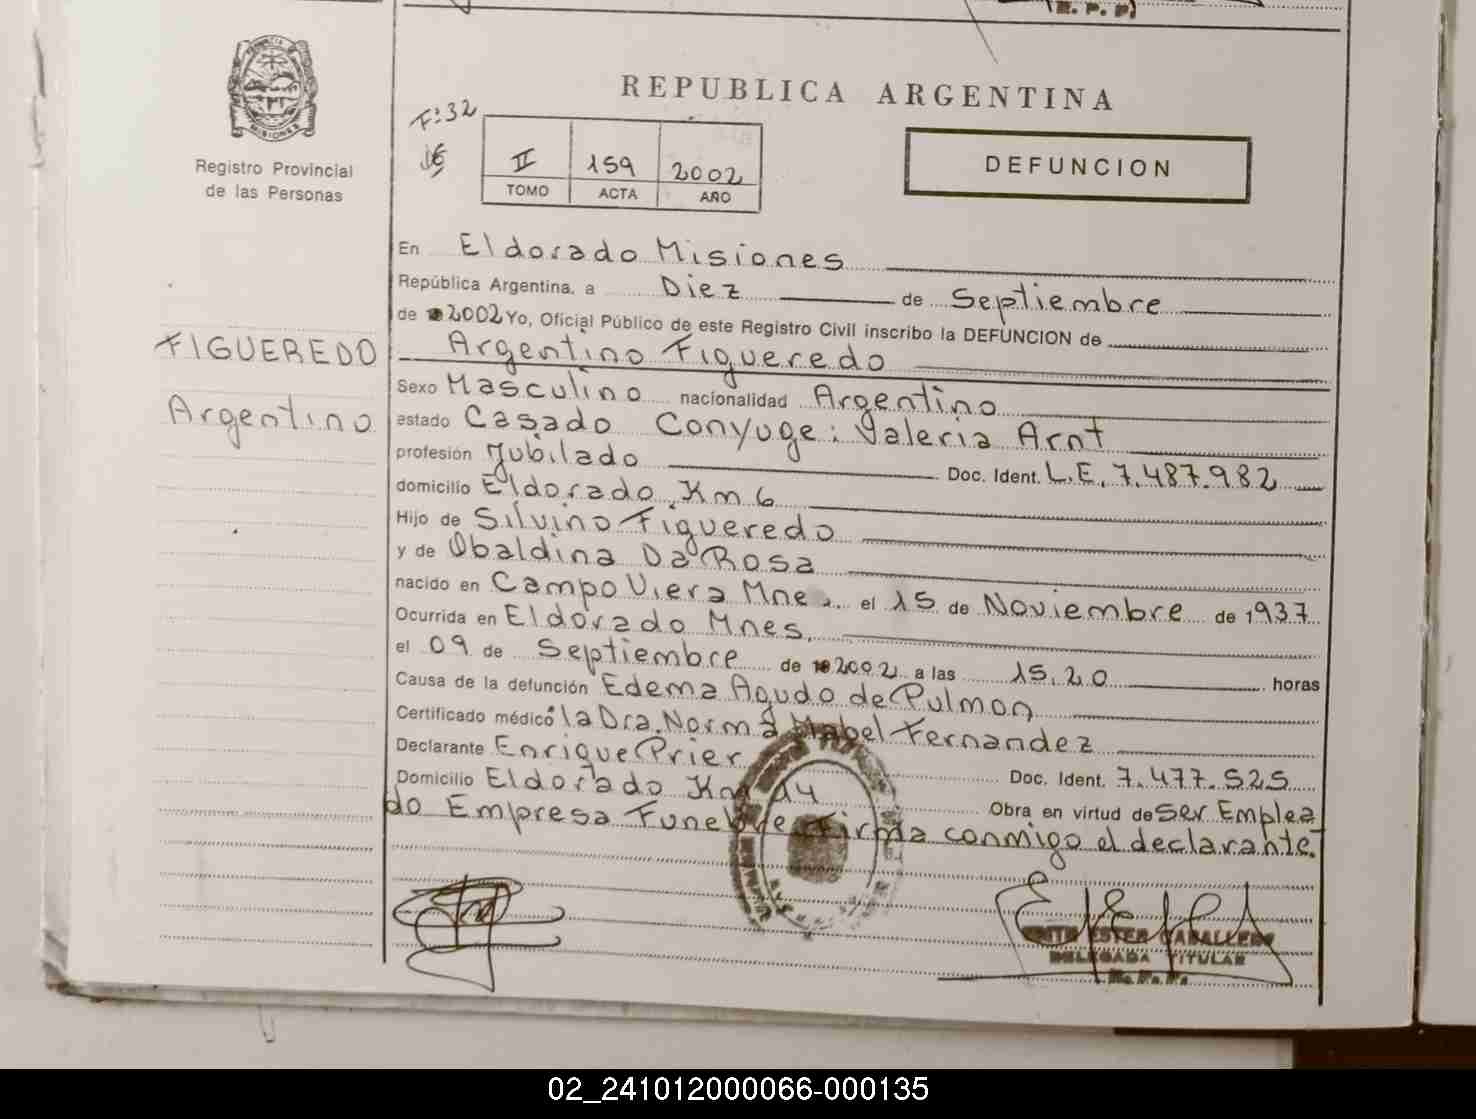 (R. P. P)
REPUBLICA ARGENTINA
MISIONES
Registro Provincial
de las Personas
F:32
II 159 2002
TOMO ACTA AÑO
DEFUNCION
En Eldorado Misiones
República Argentina, a Diez de Septiembre
de 2002 Yo, Oficial Público de este Registro Civil inscribo la DEFUNCION de
FIGUEREDO
Argentino
Argentino Figueredo
Sexo Masculino nacionalidad Argentino
estado Casado Conyuge: Valeria Arnt
profesión Jubilado Doc. Ident. L.E. 7.487.982
domicilio Eldorado Km 6
Hijo de Silvino Figueredo
y de Obaldina Da Rosa
nacido en Campo Viera Mnes. el 15 de Noviembre de 1937
Ocurrida en Eldorado Mnes.
el 09 de Septiembre de 2002 a las 15.20 horas
Causa de la defunción Edema Agudo de Pulmon
Certificado médico la Dra. Norma Mabel Fernandez
Declarante Enrique Prier
Doc. Ident. 7.477.525
Domicilio Eldorado Km 14
Obra en virtud de Ser Emplea
do Empresa Funebre Firma conmigo el declarante.
ESTER CABALLERO
DELEGADA TITULAR
R. P. P.
02_241012000066-000135